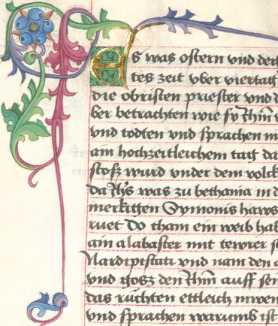 Es was ostern vnd der
tes zeit vber vier tag
die obristen priester vnd
betrachten wie sy
vnd todten vnd sprachen
am hochzeitleichem tag da
stoss wurd vnder dem volck
da was zu bethania in d
Symonis haws
ruet Do cham ein weib hab
ain alabaster mit
Nardi pistati vnd nam den
vnd goss den auff sein
das ruchten ettleich
vnd sprachen warumb